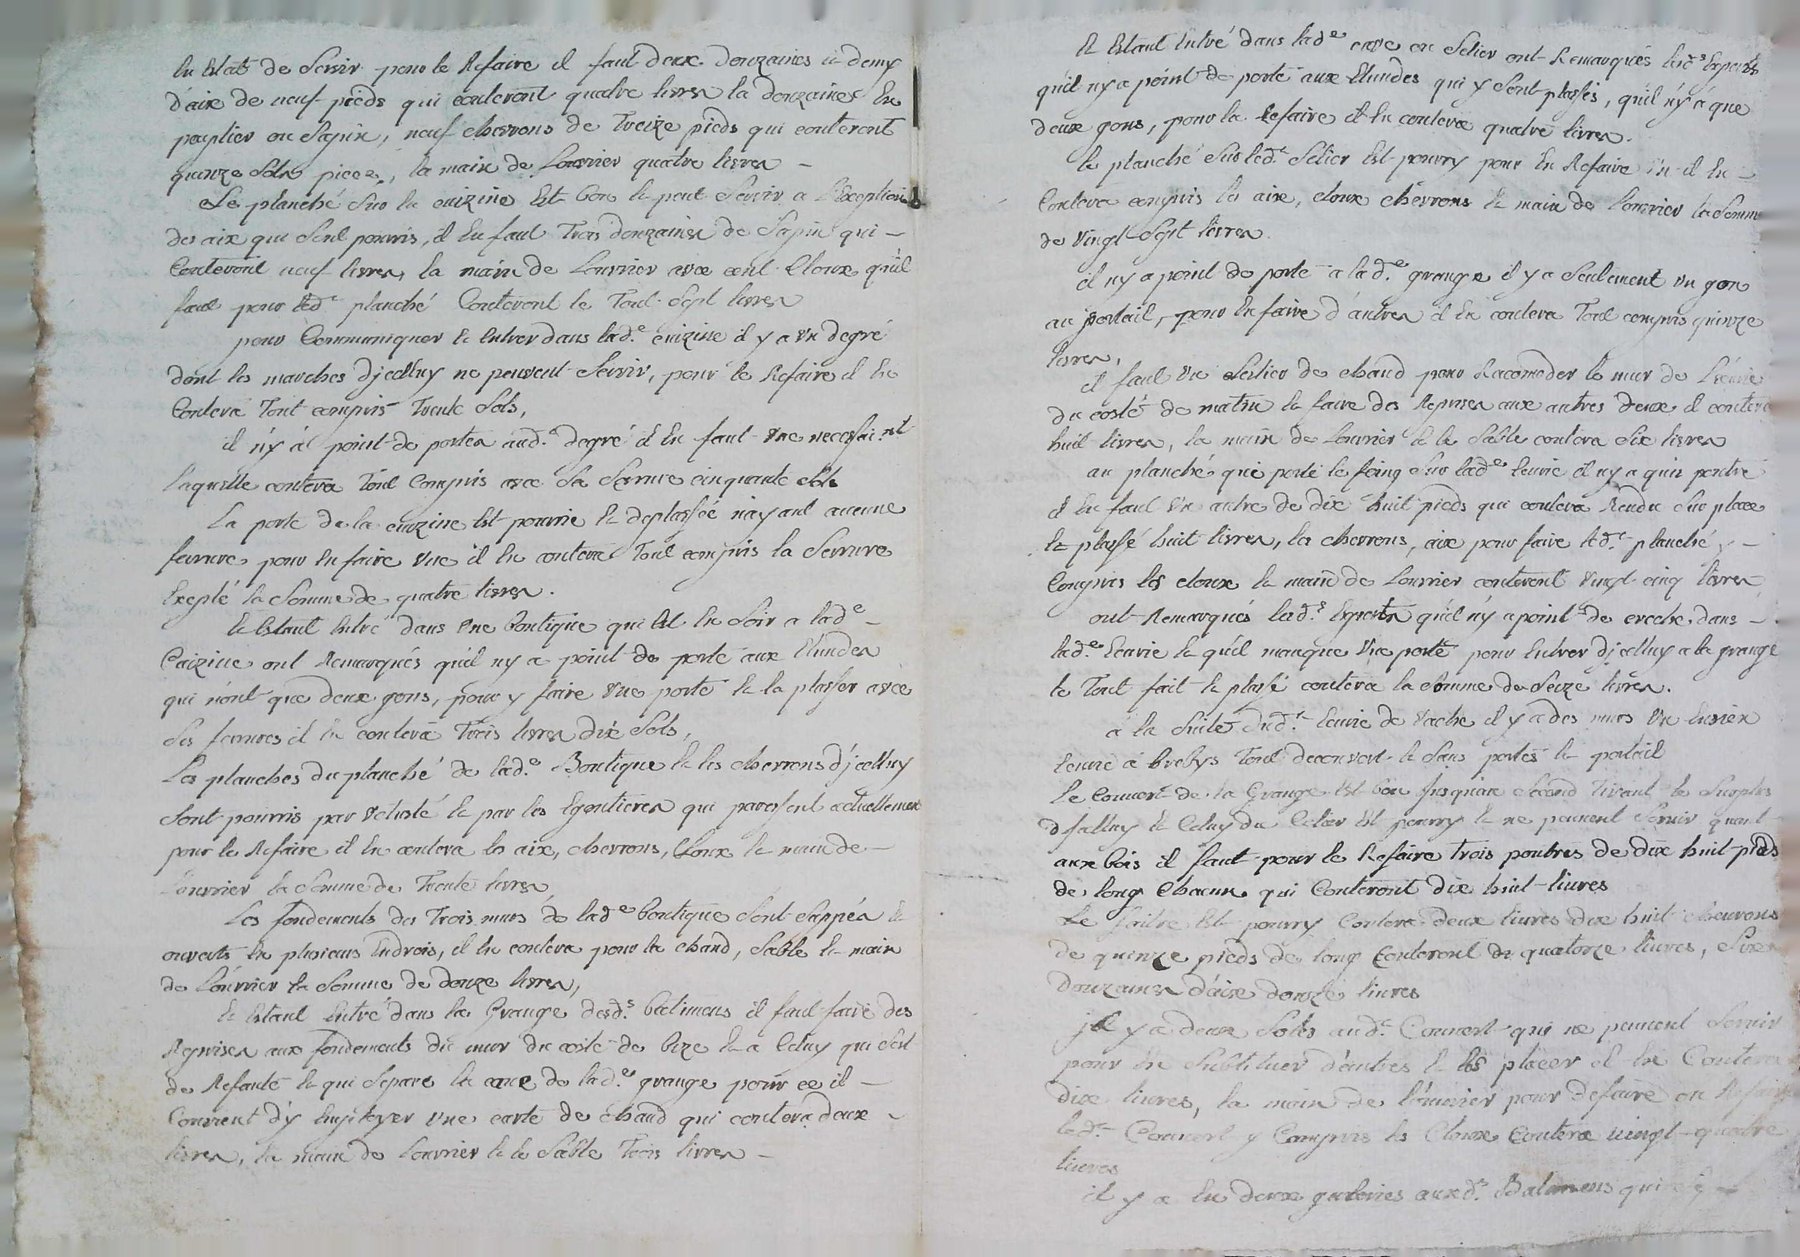 En Estat de Servir pour le Refaire il faut deux Douzaines et demy
d'aix de neuf pieds qui couteront quatre livres la douzaine En
peuplier ou sapin, neuf chevrons de Treize pieds qui couteront
quinze sols piece, la main de Louvrier quatre livres
Le planché sur la cuizine Est bon et peut servir a L'Exception
des aix qui sont pourris, il En faut Trois douzaines de Sapin qui
Couteront neuf livres, la main de Louvrier avec cent Cloux qu'il
faut pour led.t planché Couteront le Tout Sept livres
pour Communiquer et Entrer dans lad.e cuizine il y a Un degré
dont les marches d'jcelluy ne peuvent Servir, pour le Refaire il En
Coutera Tout compris Trente Sols,
il n'y a point de portes aud.t degré il En faut Une
Laquelle coutera Tout Compris avec Sa Serrure cinquante sols
La porte de la cuizine Est pourrie et deplassée n'ayant aucune
ferrure pour En faire Une il En coutera Tout compris la Serrure
Exepté la Somme de quatre livres.
Et Estant Entré dans Une Boutique qui Est En Soir a lad.e
Cuizine ont Remarqués qu'il ny a point de porte aux
qui n'ont que deux gons, pour y faire Une porte et la plasser avec
Ses ferrures il En coutera Trois livres dix Sols,
Les planches du planché de lad.e Boutique et les chevrons d'jcelluy
Sont pourris par Vetusté et par les Egoutieres qui paroissent actuellement
pour le Refaire il En coutera les aix, chevrons, Cloux et main de
Louvrier la Somme de Trente livres
Les fondements des Trois murs de lad.e boutique Sont Sappés et
ouverts En plusieurs Endrois, il En coutera pour la chaud, Sable et main
de Louvrier la Somme de douze livres,
Et Estant Entré dans la Grange desd.s Batimens il faut faire des
Reprises aux fondements du mur du costé de bize et a Celuy qui Est
de Refante et qui Separe la cave de lad.e grange pour ce il
Convient d'y Employer Une carte de chaud qui coutera deux
livres, la main de Louvrier et le Sable Trois livres
Et Estant Entré dans lad.e cave ou Selier ont Remarqués lesd.s Experts
qu'il ny a point de porte aux qui y Sont plassés, qu'il n'y a que
deux gons, pour la Refaire il En coutera quatre livres.
le planché Sur led.t Selier Est pourry pour En Refaire Un il En
Coutera compris les aix, cloux chevrons et main de Louvrier la Somme
de Vingt Sept livres.
il ny a point de porte a lad.e grange il y a Seulement un gon
au portail, pour En faire d'autres il En coutera Tout compris quinze
livres,
il faut Un Setier de chaud pour Racomoder le mur de L'écurie
du costé de matin et faire des Reprises aux autres deux il coutera
huit livres, la main de Louvrier et le Sable coutera Six livres
au planché qui porte le foing Sur lad.e Ecurie il ny a qu'un poutre
il En faut Un autre de dix huit pieds qui coutera Rendu Sur place
et plassé huit livres, les chevrons, aix pour faire led.t planché y
Compris les cloux et main de Louvrier couteront Vingt cinq livres
ont Remarqués lesd.s Experts qu'il n'y a point de creche dans
lad.e Ecurie et qu'il manque Une porte pour Entrer d'jcelluy a la grange
le Tout fait et plassé coutera la Somme de Seize livres.
a la Suite dud.t Ecurie de Vache il y a des murs Un
Ecurie a brebys Tout decouvert et Sans portes et portail
Le Couvert de la Grange est bon jusquau Second Tirant le Surplus
d'jcelluy et Celuy du Celier Est pourry et ne peuvent Servir quant
aux bois il faut pour le Refaire trois poutres de dix huit pieds
de long Chacun qui Couteront dix huit livres
Le faitre Est pourry Coutera deux livres dix huit chevrons
de quinze pieds de long Couteront de quatorze livres, Six
Douzaines d'aix douze livres
jl y a deux Soles aud.t Couvert qui ne peuvent Servir
pour En Subtituer d'autres et les placer il En Coutera
dix livres, la main de Louvrier pour defaire ou Refaire
led.t Couvert y Compris les Cloux Coutera vingt-quatre
livres
il y a En deux galeries auxd.s Batimens qui